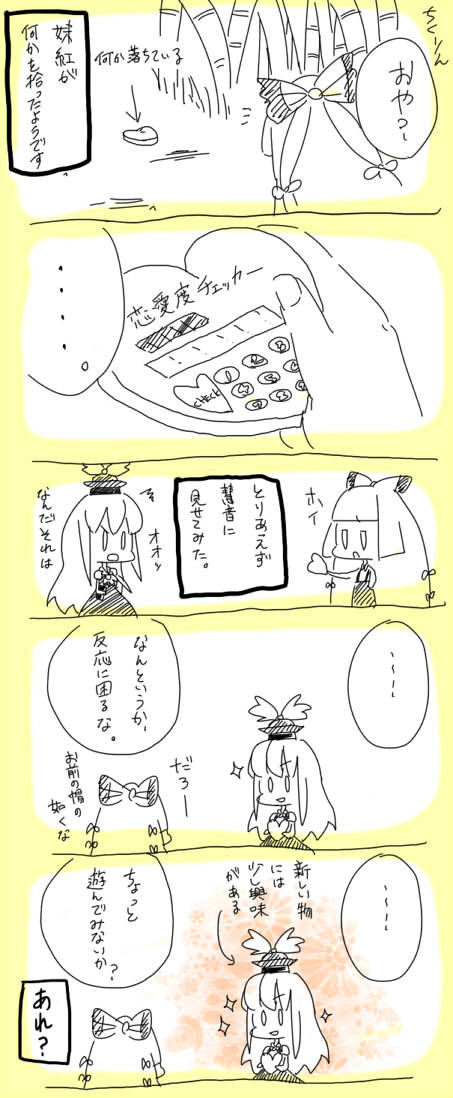 ちくりん
おやっ～
何か落ちている
妹紅が
何かを拾ったようです
・・・・・。
恋愛度チェッカー
CHECK
ホイ
とりあえず
慧音に
見せてみた。
オオッ
なんだそれは
・～～！
なんというか、
反応に困るな。
だろー
お前の帽の
如くな
・～～！
新しい物
には
少し興味
がある
ちょっと
遊んでみないか？
あれ？